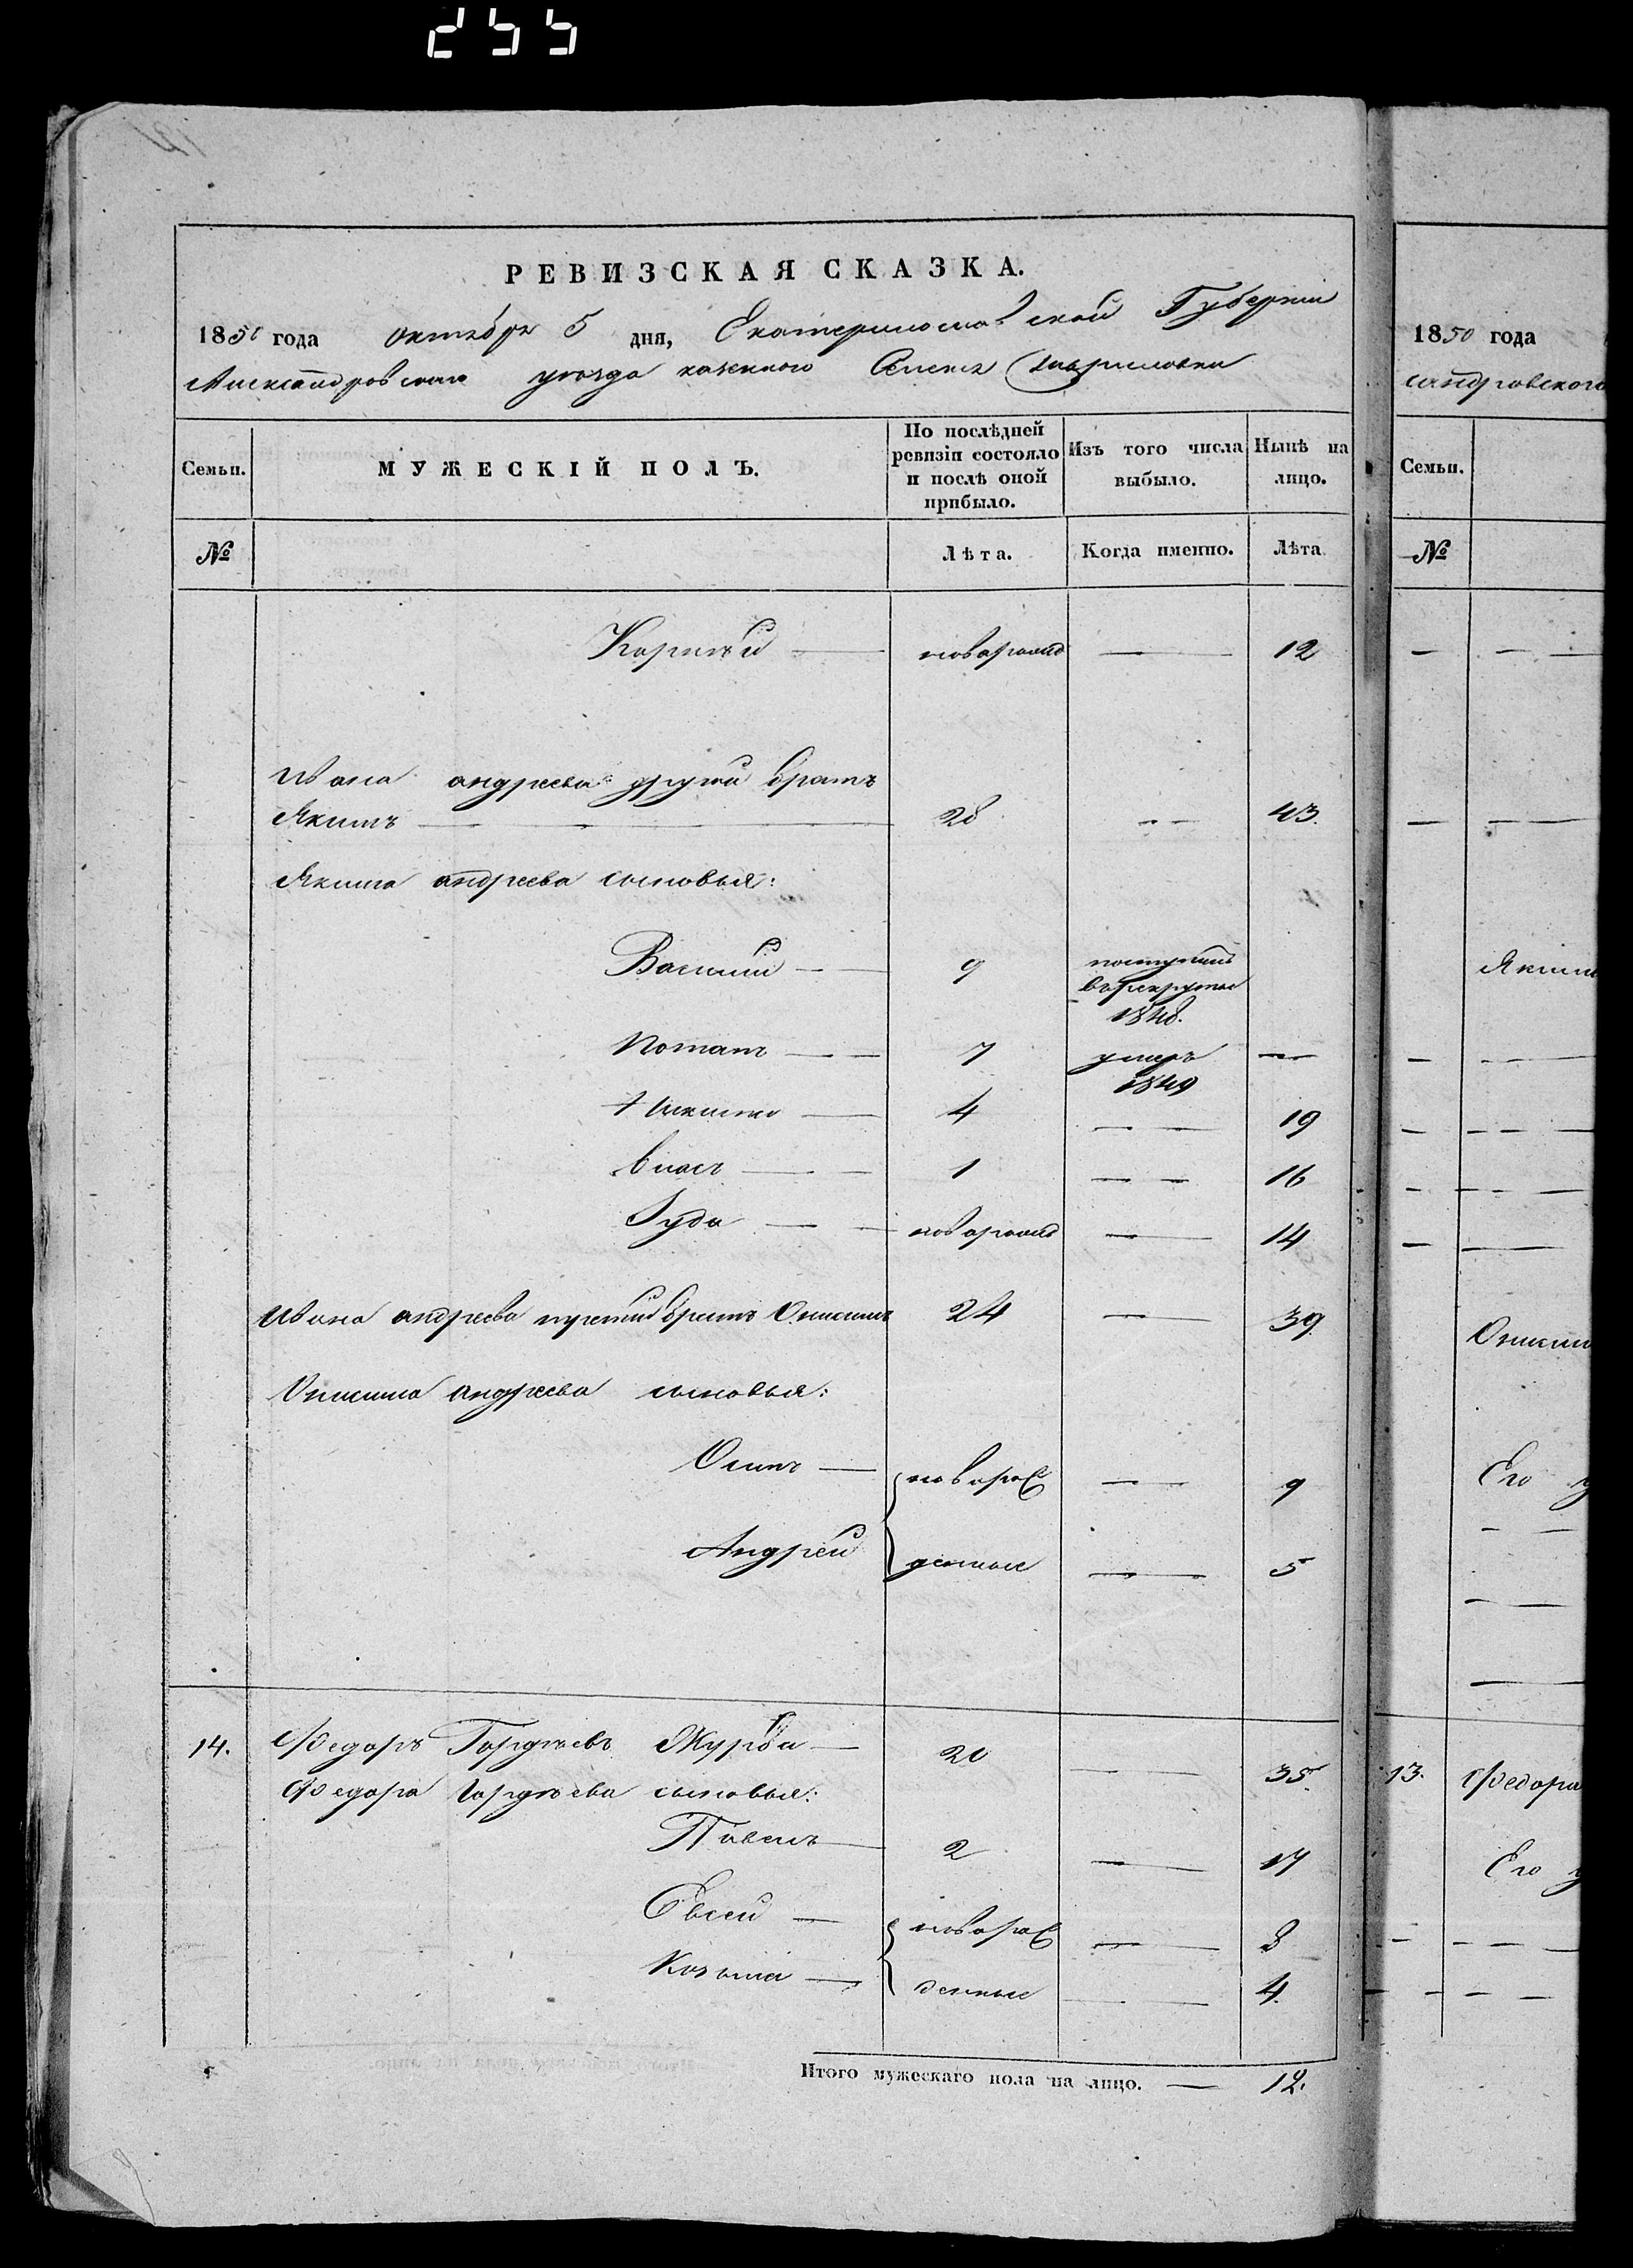 255
РЕВИЗСКАЯ СКАЗКА.
1850 года октября 5 дня, Екатеринославской Губернии
Александровского уѣзда казенного Селенія Гавриловки
Семьи. МУЖЕСКІЙ ПОЛЪ. По послѣдней ревизіи состояло и послѣ оной прибыло. Изъ того числа выбыло. Нынѣ на лицо.
№ Лѣта. Когда именно. Лѣта
новорожд — 12
Ивана андреева другой братъ
Якимъ — 28 — 43.
Якима андреева сыновья:
Василий — 9 поступилъ
въ рекруты
1848.
Потапъ — 7 умеръ —
1849
Никита — 4 — 19
Власъ — 1 — 16
Іуда — новорожд — 14
Ивана андреева третий братъ Онисимъ 24 — 39.
Онисима андреева сыновья:
Осипъ — новорож — 9
Андрей денные — 5
14. Федоръ Гордѣевъ Журба — 20 — 35.
Федора Гордѣева сыновья:
Павелъ — 2 — 17
Евсей — новорож — 8
Козьма — денные — 4.
Итого мужескаго пола на лицо. — 12.
1850 года
сандровского
Семьи.
№
Яким
Онисим
Его
13. Федора
Его